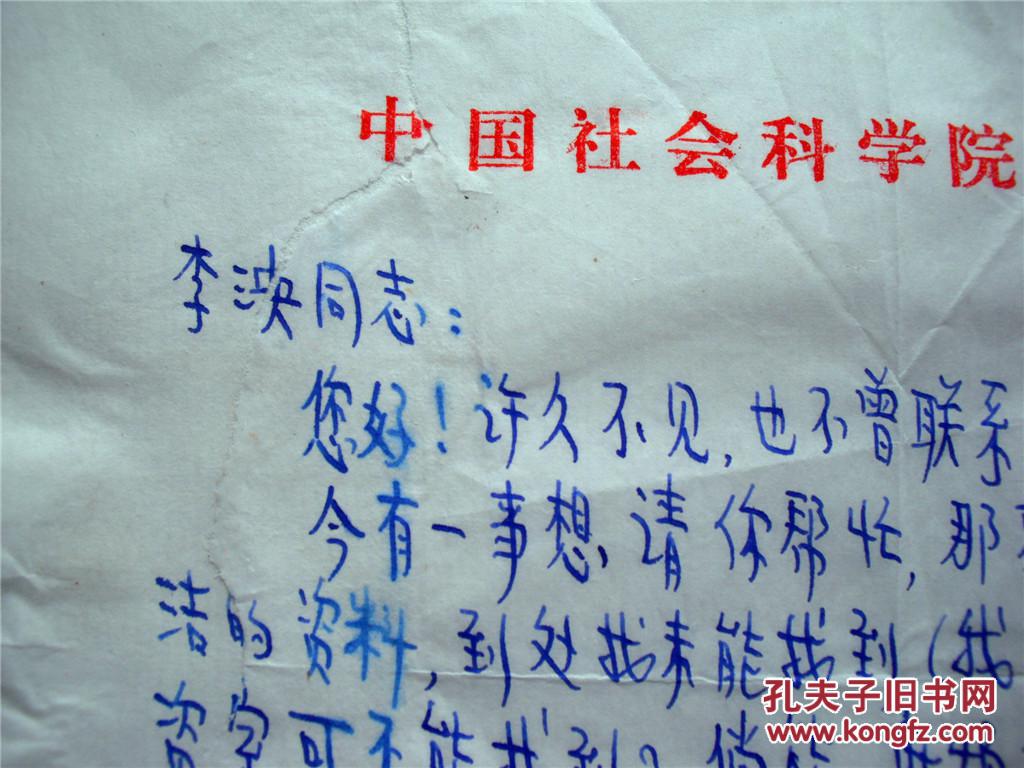 中国社会科学院
李泱同志：
您好！许久不见，也不曾联系
今有一事想请你帮忙，那
洁的资料，到处找未能找到（我
资室可不能找到？倘能
孔夫子旧书网
www.kongfz.com